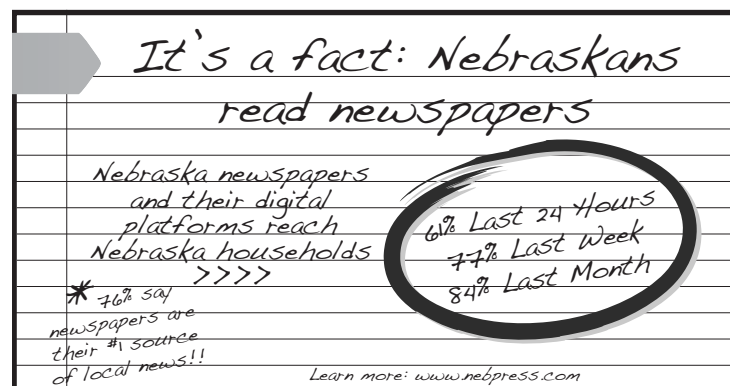 It's a fact: Nebraskans
read newspapers
Nebraska newspapers
and their digital
platforms reach
Nebraska households
>>>>
61% Last 24 Hours
77% Last Week
84% Last Month
* 76% say
newspapers are
their #1 source
of local news!!
Learn more: www.nebpress.com